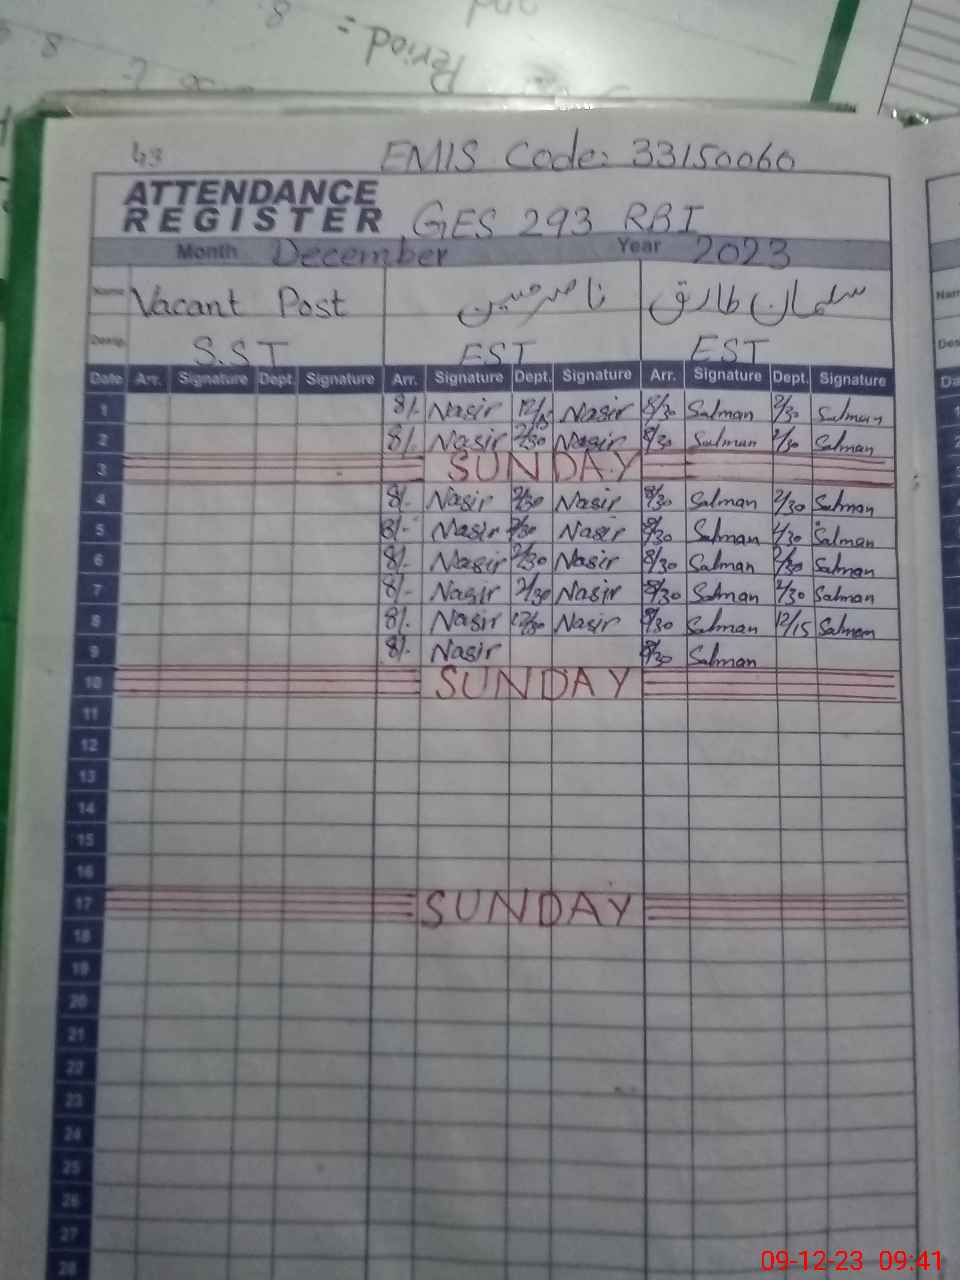 Period =
8
43
EMIS Code: 33150060
ATTENDANCE
REGISTER GES 293 RBI
Month December Year 2023
Name Vacant Post ناصر حسین سلمان طارق
Desig. S.S.T EST EST
Date Arr. Signature Dept. Signature Arr. Signature Dept. Signature Arr. Signature Dept. Signature
1 8/- Nasir 12/15 Nasir 8/30 Salman 2/30 Salman
2 8/- Nasir 2/30 Nasir 8/30 Salman 2/30 Salman
3 SUNDAY
4 8/- Nasir 2/30 Nasir 8/30 Salman 2/30 Salman
5 8/- Nasir 2/30 Nasir 8/30 Salman 2/30 Salman
6 8/- Nasir 2/30 Nasir 8/30 Salman 2/30 Salman
7 8/- Nasir 2/30 Nasir 8/30 Salman 2/30 Salman
8 8/- Nasir 12/30 Nasir 8/30 Salman 12/15 Salman
9 8/- Nasir 8/30 Salman
10 SUNDAY
11
12
13
14
15
16
17 SUNDAY
18
19
20
21
22
23
24
25
26
27
28
09-12-23 09:41